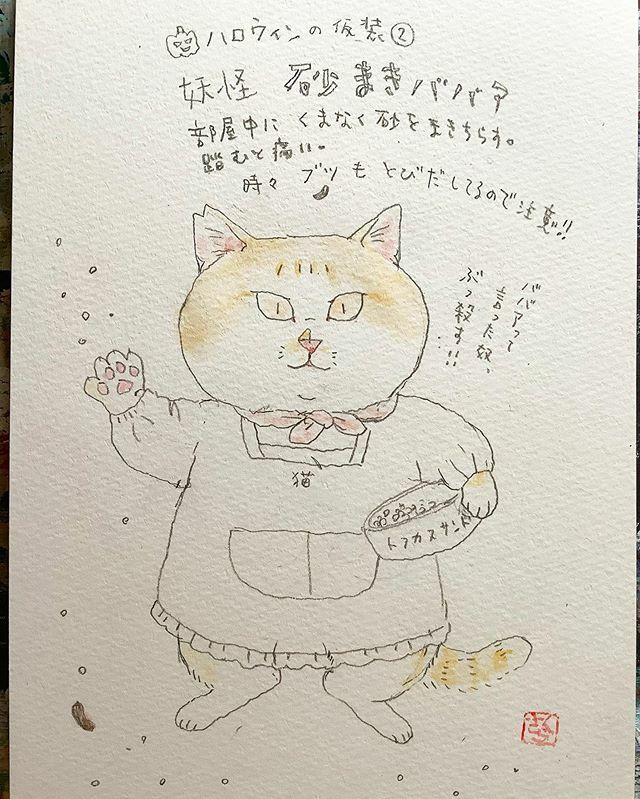 ハロウィンの仮装②
妖怪 砂まきババア
部屋中に くまなく砂をまきちらす。
踏むと痛い。
時々 ブツ も とびだしてるので注意!!
ババアって
言った奴、
ぶっ殺す!!
猫
トフカスサンド